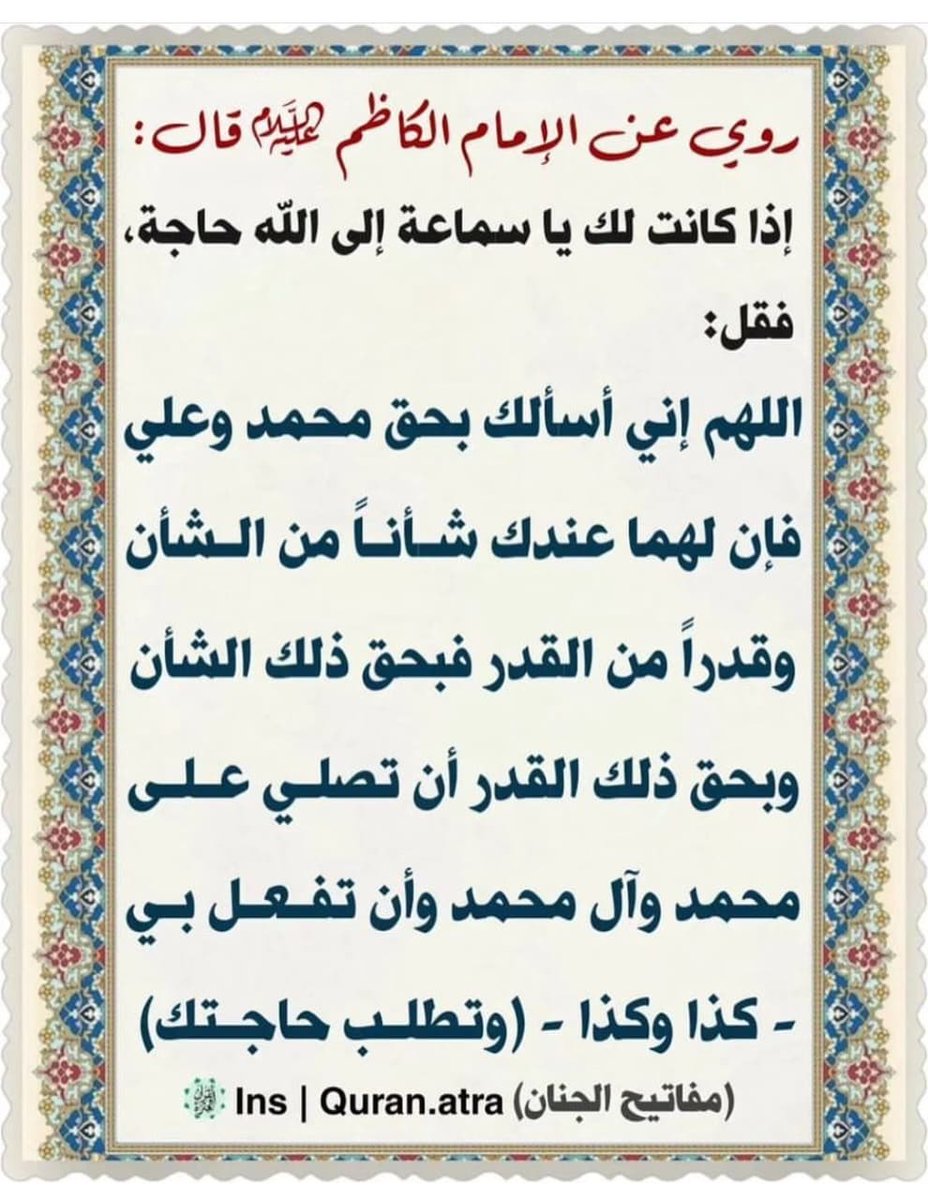 روي عن الإمام الكاظم عليه السلام قال:
إذا كانت لك يا سماعة إلى الله حاجة،
فقل:
اللهم إني أسألك بحق محمد وعلي
فإن لهما عندك شـأنـاً من الـشأن
وقدراً من القدر فبحق ذلك الشأن
وبحق ذلك القدر أن تصلـي عـلـى
محمد وآل محمد وأن تفـعـل بـي
- كذا وكذا - (وتطلـب حاجـتك)
(مفاتيح الجنان) Ins | Quran.atra